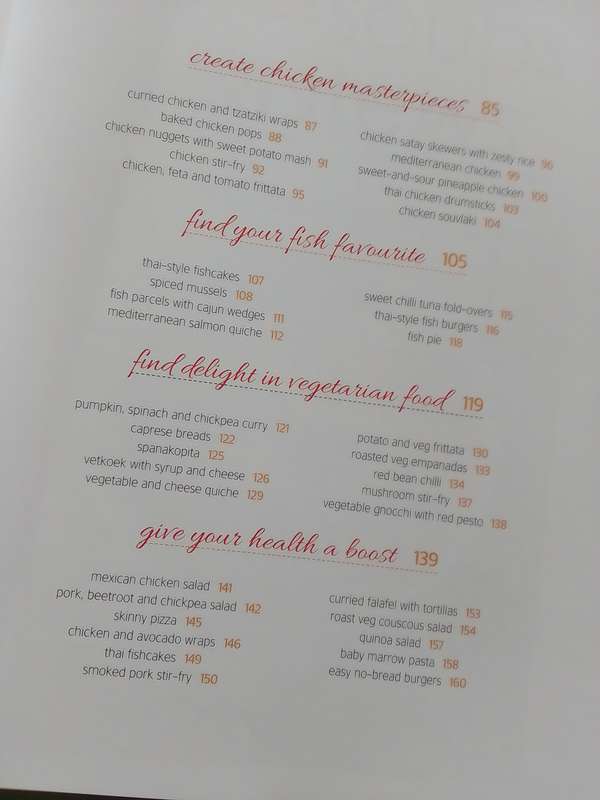 create chicken masterpieces 85
curried chicken and tzatziki wraps 87
baked chicken pops 88
chicken nuggets with sweet potato mash 91
chicken stir-fry 92
chicken, feta and tomato frittata 95
chicken satay skewers with zesty rice 96
mediterranean chicken 99
sweet-and-sour pineapple chicken 100
thai chicken drumsticks 103
chicken souvlaki 104
find your fish favourite 105
thai-style fishcakes 107
spiced mussels 108
fish parcels with cajun wedges 111
mediterranean salmon quiche 112
sweet chilli tuna fold-overs 115
thai-style fish burgers 116
fish pie 118
find delight in vegetarian food 119
pumpkin, spinach and chickpea curry 121
caprese breads 122
spanakopita 125
vetkoek with syrup and cheese 126
vegetable and cheese quiche 129
potato and veg frittata 130
roasted veg empanadas 133
red bean chilli 134
mushroom stir-fry 137
vegetable gnocchi with red pesto 138
give your health a boost 139
mexican chicken salad 141
pork, beetroot and chickpea salad 142
skinny pizza 145
chicken and avocado wraps 146
thai fishcakes 149
smoked pork stir-fry 150
curried falafel with tortillas 153
roast veg couscous salad 154
quinoa salad 157
baby marrow pasta 158
easy no-bread burgers 160